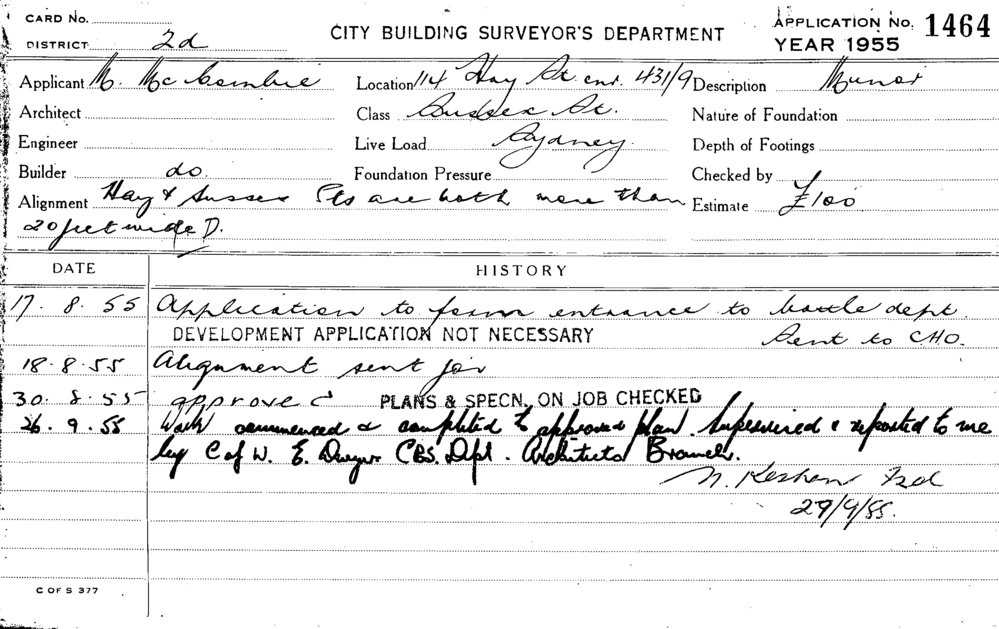 CARD No.
DISTRICT 2d
CITY BUILDING SURVEYOR'S DEPARTMENT
APPLICATION No. 1464
YEAR 1955
Applicant M. McCombie Location 114 Hay St. cnr. 431/9 Description Minor
Architect Class Sussex St. Nature of Foundation
Engineer Live Load Sydney. Depth of Footings
Builder do. Foundation Pressure Checked by
Alignment Hay & Sussex Sts are both more than Estimate £100
20 feet wide D.
DATE HISTORY
17. 8. 55 Application to form entrance to bottle dept.
DEVELOPMENT APPLICATION NOT NECESSARY Sent to CHO.
18.8.55 Alignment sent for
30. 8. 55 approved PLANS & SPECN. ON JOB CHECKED
26. 9. 55 Work commenced & completed to approved plan. Supervised & reported to me
by C of W. E. Dwyer CBS. Dept. Architects Branch.
29/9/55.
C OF S 377